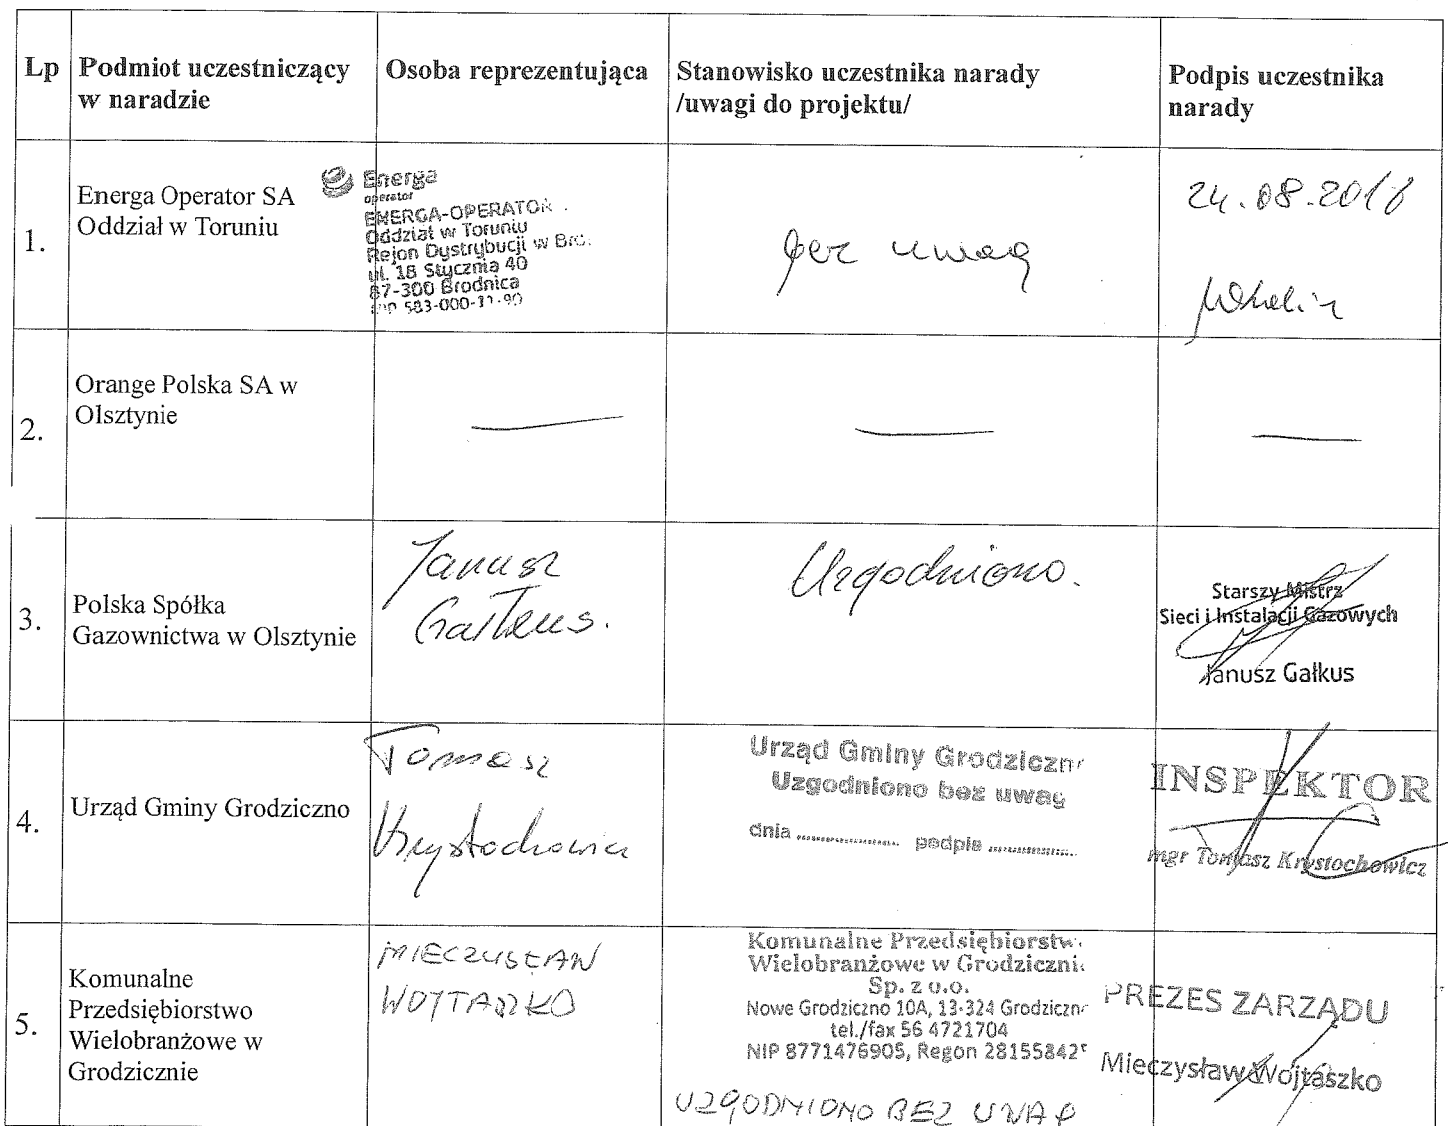 Lp
Podmiot uczestniczący
w naradzie
Osoba reprezentująca
Stanowisko uczestnika narady
/uwagi do projektu/
Podpis uczestnika
narady
1.
Energa Operator SA
Oddział w Toruniu
Energa
operator
ENERGA-OPERATOR
Oddział w Toruniu
Rejon Dystrybucji w Bro
ul. 18 Stycznia 40
87-300 Brodnica
NIP 583-000-11-90
bez uwag
24.08.2018
2.
Orange Polska SA w
Olsztynie
3.
Polska Spółka
Gazownictwa w Olsztynie
Janusz
Gałkus.
Uzgodniono.
Starszy Mistrz
Sieci i Instalacji Gazowych
Janusz Gałkus
4.
Urząd Gminy Grodziczno
Tomasz
Krystochowicz
Urząd Gminy Grodziczno
Uzgodniono bez uwag
dnia .................... podpis ....................
INSPEKTOR
mgr Tomasz Krystochowicz
5.
Komunalne
Przedsiębiorstwo
Wielobranżowe w
Grodzicznie
MIECZYSŁAW
WOJTASZKO
Komunalne Przedsiębiorstw
Wielobranżowe w Grodziczni
Sp. z o.o.
Nowe Grodziczno 10A, 13-324 Grodziczno
tel./fax 56 4721704
NIP 8771476905, Regon 28155842
UZGODNIONO BEZ UWAG
PREZES ZARZĄDU
Mieczysław Wojtaszko